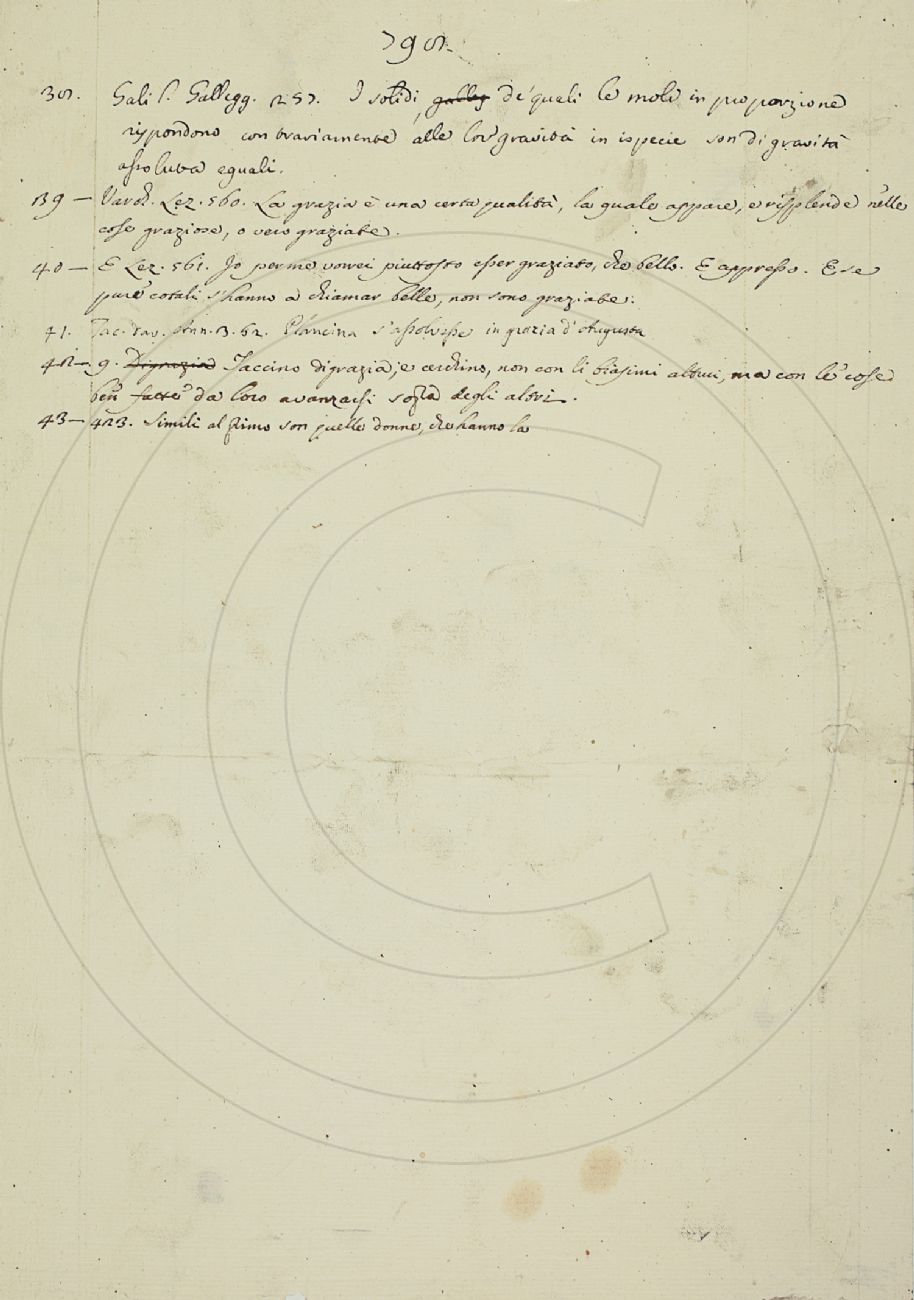 798.
38. Gal. Gallegg. 257. I solidi, galleg de' quali le moli in proporzione
rispondono contrariamente alle lor gravità in ispecie son di gravità
assoluta eguali.
39 — Varch. Lez. 560. La grazia è una certa qualità, la quale appare, e risplende nelle
cose graziose, o vero graziate.
40 — E Lez. 561. Io per me vorrei piuttosto esser graziato, che bello. E appresso. E se
pure cotali s'hanno a chiamar belle, non sono graziate.
41. Tac. Dav. Ann. 3. 62. Plancina s'assolvesse in grazia d'Augusta
42 — 9. Digrazia Faccino di grazia, e cerchino, non con li biasimi altrui, ma con le cose
ben fatte da loro avanzarsi sopra degli altri.
43 — 423. Simili al primo son quelle donne, che hanno la